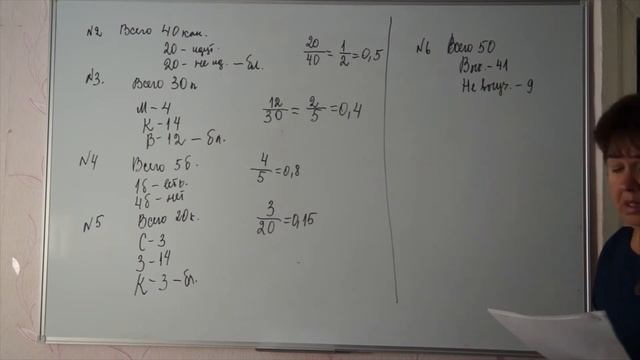 №2 Всего 40 кан.
20 - цит.
20 - не ц. - бл.
20/40 = 1/2 = 0,5
№3. Всего 30 п
М - 4
К - 14
В - 12 - бл.
12/30 = 2/5 = 0,4
№4 Всего 5б.
1б - есть.
4б - нет
4/5 = 0,8
№5 Всего 20к.
С - 3
З - 14
К - 3 - бл.
3/20 = 0,15
№6 Всего 50
Вык. - 41
Не выуч. - 9